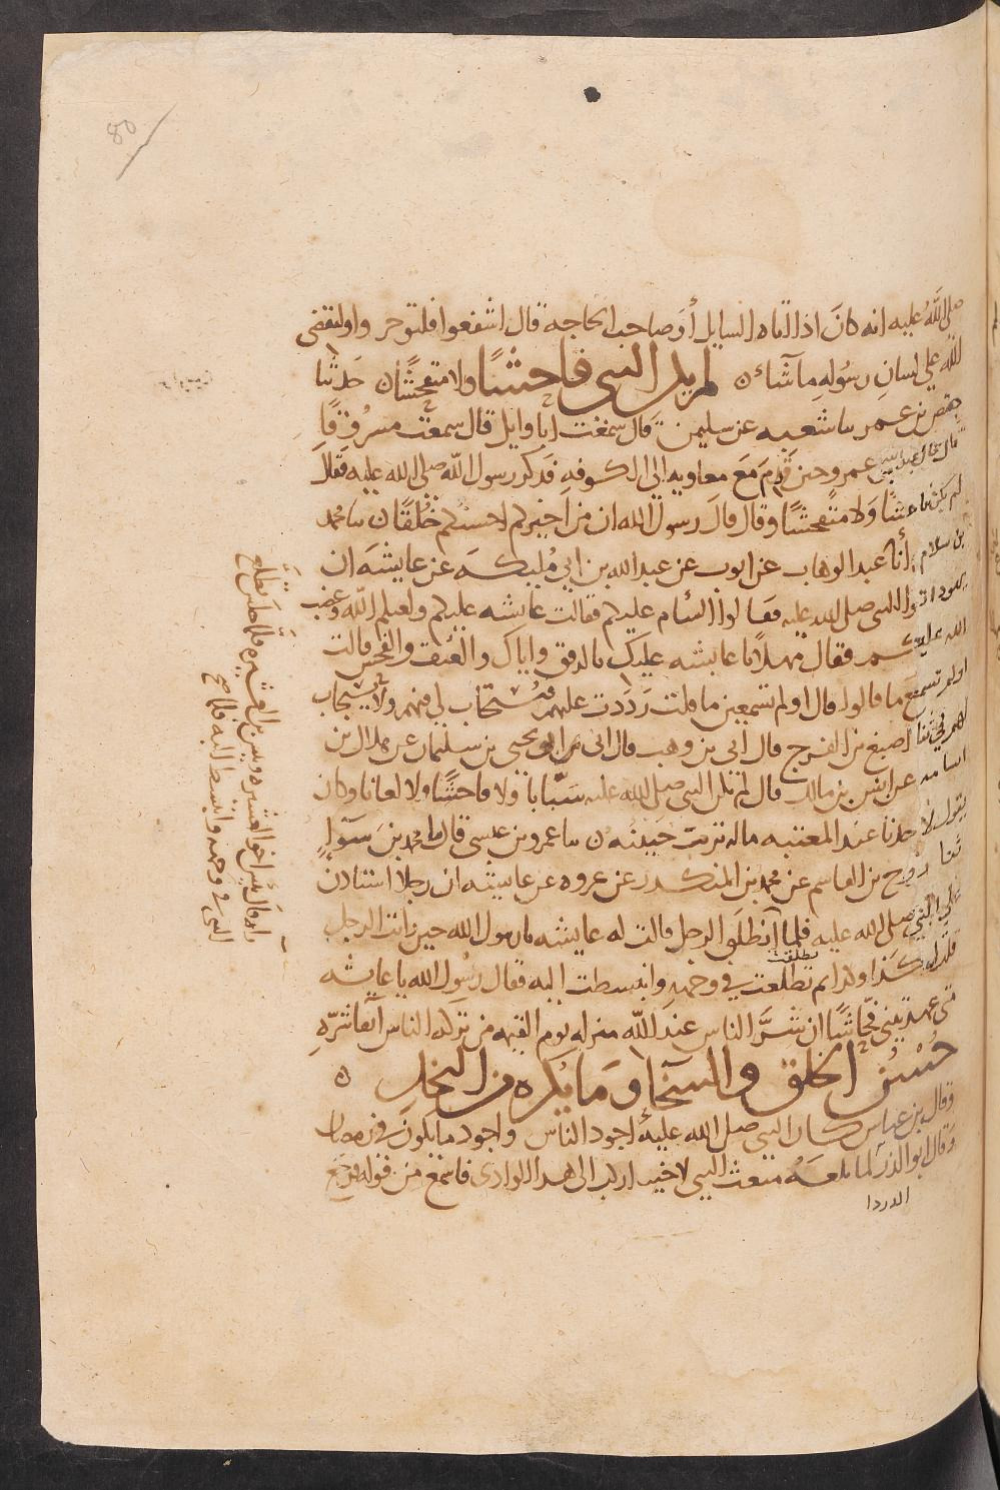 صلى اللَّهُ عليه انه كانَ اذا اتاه السايل أَو صاحب الحاجه قال اشفعوا فلتوجروا وليقضى
اللَّه على لسانِ رسُولِهِ ما شاء ن لم يكن النبى فاحشًا ولا متفحشًا ن حدثنا
حفص بن عمر نا شعبه عن سليمن قال سمعْت ابا وايل قال سمعْت مسرُوقًا
قال قال عبد الله بن عمرو حين قَدِمَ مَعَ معاويه الى الكوفه فذكر رسول الله صلى الله عليه فقال
لم يكن فاحشًا وَلا متفحشًا وقال قالَ رسول الله ان من اخيركم احسنكم خلُقًا ن نا محمد
بن سلام أنا عبد الوهاب عن ايوب عن عبد الله بن ابى مُليكه عن عايشهَ ان
يهود اتوا النبى صلى الله عليه فقالوا السَّام عليكم فقالت عايشه عليكم ولعنكم اللّه وغضب
الله عليكم فقال مهلًا يا عايشه عليكِ بالرفق واياك والعُنف والفحش قالت
اولم تسمع ما قالوا قال اولم تسمعِين ما قلت رَدَدت عليهم فيُستجاب لى فيهم ولا يُستجاب
لهم فىَّ ثنا اصبغ بن الفرج قال انى بن وهب قال انى ابو يحيى بن سليمان عن هلال بن
اسامه عن انسِ بن مالك قال لم يكن النبى صلى الله عليه سَبَّابًا ولا فاحشًا ولا لعانا وكان
يقول لاحدنا عند المعتبه ماله تربت جَبينه ن نا عمرو بن عيسى قال نا محمد بن سَوَاءٍ
ثنا رَوح بن القاسم عن محمد بن المنكدر عن عروه عن عايشه ان رجلا استاذن
على النبى صلى الله عليه فلما انْطلَق الرجل قالت له عايشه يا رسول الله حين رايت الرجل
قلت له كذا وكذا ثم تطلعت فى وجهه وانبسطت اليه فقال رسُول الله يا عايشه
تطلقت
متى عهدتِنى فحّاشًا ان شرَّ الناس عند اللَّه منزله يوم القيمه من تركه الناس اتقا شرّه
حُسْنُ الخلق والسخا وَمَا يكره من البخل ن
وقال بن عباس كان النبى صلى الله عليهُ اجود الناس واجود ما يكون فى رمضان
وقال ابو الذر لما بلغَهُ مبعث النبى لاخيه اركب الى هذا الوادى فاسمع من قوله فرجع
الدردا
راه قال بئس اخو العشيره وبئس ابن العشيره فلما جلس تطلق
النبى فى وجهه وانبسط اليه فلما صح
80